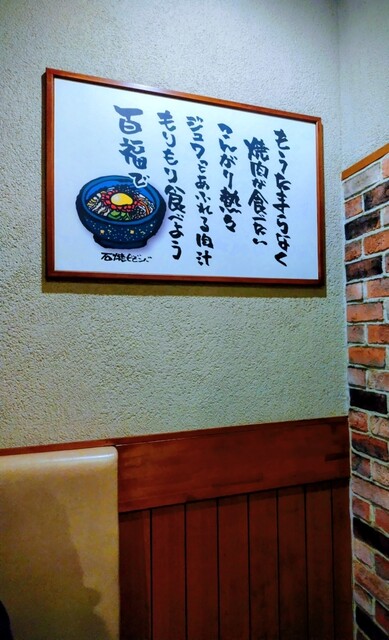 もうたまらなく
焼肉が食べたい
こんがり熱々
ジュワっとあふれる肉汁
もりもり食べよう
百福で
石焼ビビンバ